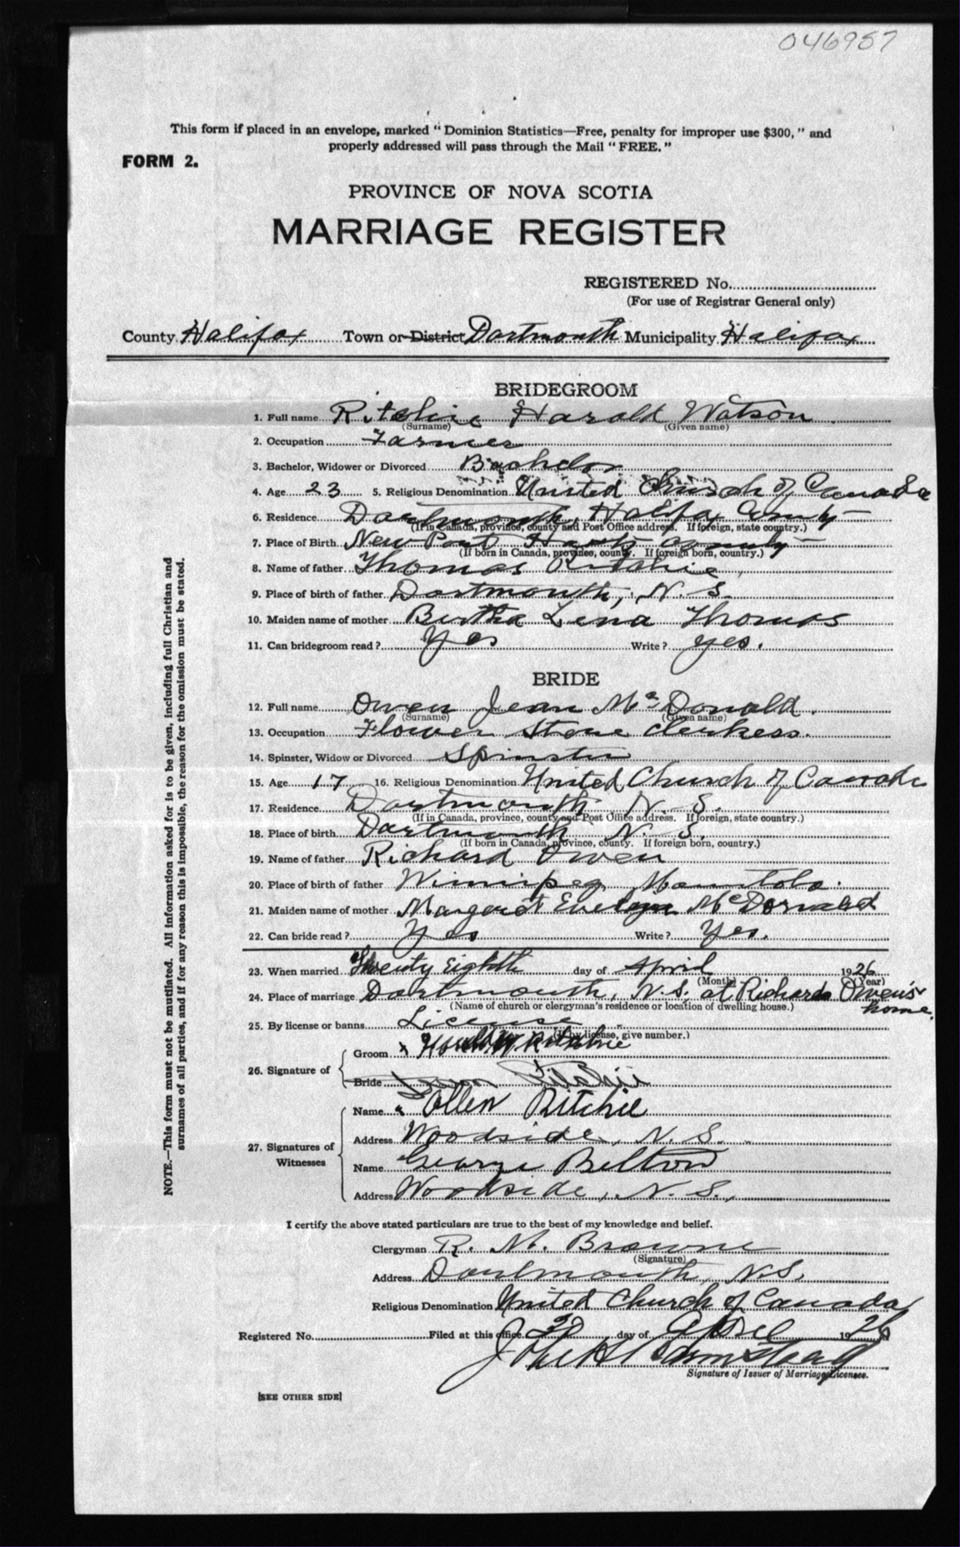 046957
This form if placed in an envelope, marked "Dominion Statistics—Free, penalty for improper use $300," and
properly addressed will pass through the Mail "FREE."
FORM 2.
PROVINCE OF NOVA SCOTIA
MARRIAGE REGISTER
REGISTERED No.
(For use of Registrar General only)
County Halifax Town or District Dartmouth Municipality Halifax
BRIDEGROOM
1. Full name Ritchie Harold Watson
(Surname) (Given name)
2. Occupation Farmer
3. Bachelor, Widower or Divorced Bachelor
4. Age 23 5. Religious Denomination United Church of Canada
6. Residence Dartmouth, Halifax County
(If in Canada, province, county and Post Office address. If foreign, state country.)
7. Place of Birth New Port Hants County
(If born in Canada, province, county. If foreign born, country.)
8. Name of father Thomas Ritchie
9. Place of birth of father Dartmouth, N.S.
10. Maiden name of mother Bertha Lena Thomas
11. Can bridegroom read? Yes Write? yes.
BRIDE
12. Full name Owen Jean McDonald.
(Surname) (Given name)
13. Occupation Flower Store clerkess.
14. Spinster, Widow or Divorced Spinster
15. Age 17 16. Religious Denomination United Church of Canada
17. Residence Dartmouth N.S.
(If in Canada, province, county and Post Office address. If foreign, state country.)
18. Place of birth Dartmouth N.S.
(If born in Canada, province, county. If foreign born, country.)
19. Name of father Richard Owen
20. Place of birth of father Winnipeg Manitoba.
21. Maiden name of mother Margaret Evelyn McDonald
22. Can bride read? Yes Write? Yes.
23. When married Twenty Eighth day of April 1926
(Month) (Year)
24. Place of marriage Dartmouth, N.S. at Richard Owen's home.
(Name of church or clergyman's residence or location of dwelling house.)
25. By license or banns License
(If by license, give number.)
26. Signature of
Groom x Harold W Ritchie
Bride Jean Ritchie
27. Signatures of Witnesses
Name x Ellen Ritchie
Address Woodside, N.S.
Name George Belton
Address Woodside, N.S.,
I certify the above stated particulars are true to the best of my knowledge and belief.
Clergyman R. M. Browne
(Signature)
Address Dartmouth, N.S.
Religious Denomination United Church of Canada
Registered No. Filed at this office 30 day of April 1926
Signature of Issuer of Marriage Licenses.
[SEE OTHER SIDE]
NOTE.—This form must not be mutilated. All information asked for is to be given, including full Christian and
surnames of all parties, and if for any reason this is impossible, the reason for the omission must be stated.